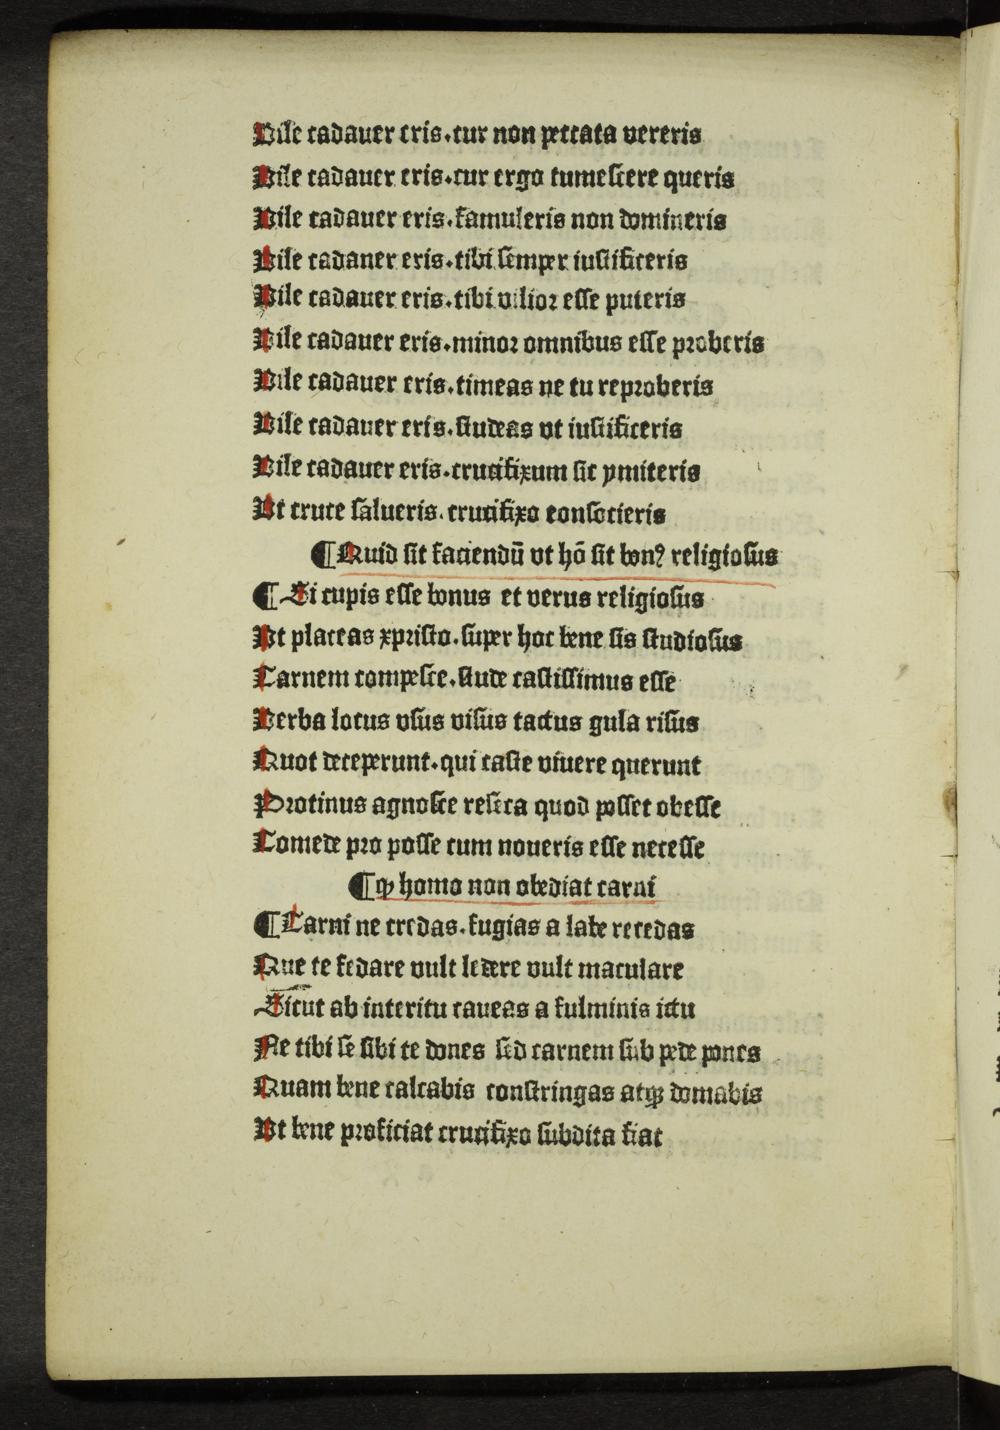 Vile cadauer eris.cur non peccata vereris
Vile cadauer eris.cur ergo tumescere queris
Vile cadauer eris.famuleris non domineris
Vile cadaner eris.tibi semper iustificeris
Vile cadauer eris.tibi vilior esse puteris
Vile cadauer eris.minor omnibus esse proberis
Vile cadauer eris.timeas ne tu reproberis
Vile cadauer eris.studeas vt iustificeris
Vile cadauer eris.crucifixum sic ymiteris
Vt cruce salueris.crucifixo consocieris
¶Quid sit faciendū vt hō sit bonꝰ religiosus
¶Si cupis esse bonus et verus religiosus
Vt placeas xpristo.super hoc bene sis studiosus
Carnem compesce.stude castissimus esse
Verba locus vsus visus tactus gula risus
Quot deceperunt.qui caste viuere querunt
Protinus agnosce reseca quod posset obesse
Comede pro posse cum noueris esse necesse
¶ꝙ homo non obediat carni
¶Carni ne credas.fugias a labe recedas
Que te fedare vult ledere vult maculare
Sicut ab interitu caueas a fulminis ictu
Ne tibi se sibi te dones sed carnem sub pede pones
Quam bene calcabis constringas atqꝫ domabis
Vt bene proficiat crucifixo subdita fiat